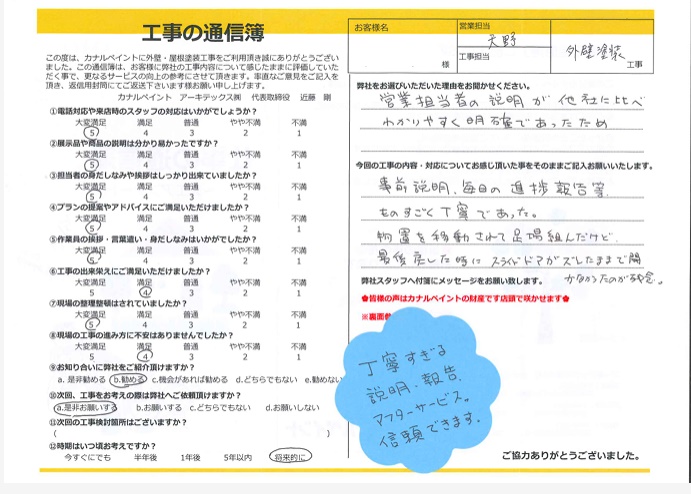 工事の通信簿
この度は、カナルペイントに外壁・屋根塗装工事をご利用頂き誠にありがとうござい
ました。この通信簿は、お客様に弊社の工事内容について感じたままに評価していた
だく事で、更なるサービスの向上の参考にさせて頂きます。率直なご意見をご記入を
頂き、返信用封筒にてご返送下さいます様お願い申し上げます。
カナルペイント アーキテックス㈱ 代表取締役 近藤 剛
①電話対応や来店時のスタッフの対応はいかがでしょうか?
大変満足 満足 普通 やや不満 不満
5 4 3 2 1
②展示品や商品の説明は分かり易かったですか?
大変満足 満足 普通 やや不満 不満
5 4 3 2 1
③担当者の身だしなみや挨拶はしっかり出来ていましたか?
大変満足 満足 普通 やや不満 不満
5 4 3 2 1
④プランの提案やアドバイスにご満足いただけましたか?
大変満足 満足 普通 やや不満 不満
5 4 3 2 1
⑤作業員の挨拶・言葉遣い・身だしなみはいかがでしたか?
大変満足 満足 普通 やや不満 不満
5 4 3 2 1
⑥工事の出来栄えにご満足いただけましたか?
大変満足 満足 普通 やや不満 不満
5 4 3 2 1
⑦現場の整理整頓はされていましたか?
大変満足 満足 普通 やや不満 不満
5 4 3 2 1
⑧現場の工事の進み方に不安はありませんでしたか?
大変満足 満足 普通 やや不満 不満
5 4 3 2 1
⑨お知り合いに弊社をご紹介頂けますか?
a. 是非勧める b.勧める c.機会があれば勧める d.どちらでもない e.勧めない
⑩次回、工事をお考えの際は弊社へご依頼頂けますか?
a.是非お願いする b.お願いする c.どちらでもない d.お願いしない
⑪次回の工事検討箇所はございますか?
( )
⑫時期はいつ頃お考えですか?
今すぐにでも 半年後 1年後 5年以内 将来的に
お客様名
様
営業担当
天野
工事担当
外壁塗装
工事
弊社をお選びいただいた理由をお聞かせください。
営業担当者の説明が他社に比べ
わかりやすく明確であったため
今回の工事の内容・対応についてお感じ頂いた事をそのままご記入お願いします。
事前説明、毎日の進捗報告等、
ものすごく丁寧であった。
物置を移動されて足場組んだけど、
最後戻した時にスライドドアがズレたままで開
かなかったのが残念。
弊社スタッフへ付箋にメッセージをお願い致します。
✿皆様の声はカナルペイントの財産です店頭で咲かせます✿
※裏面参
丁寧すぎる
説明、報告、
アフターサービス。
信頼できます。
ご協力ありがとうございました。